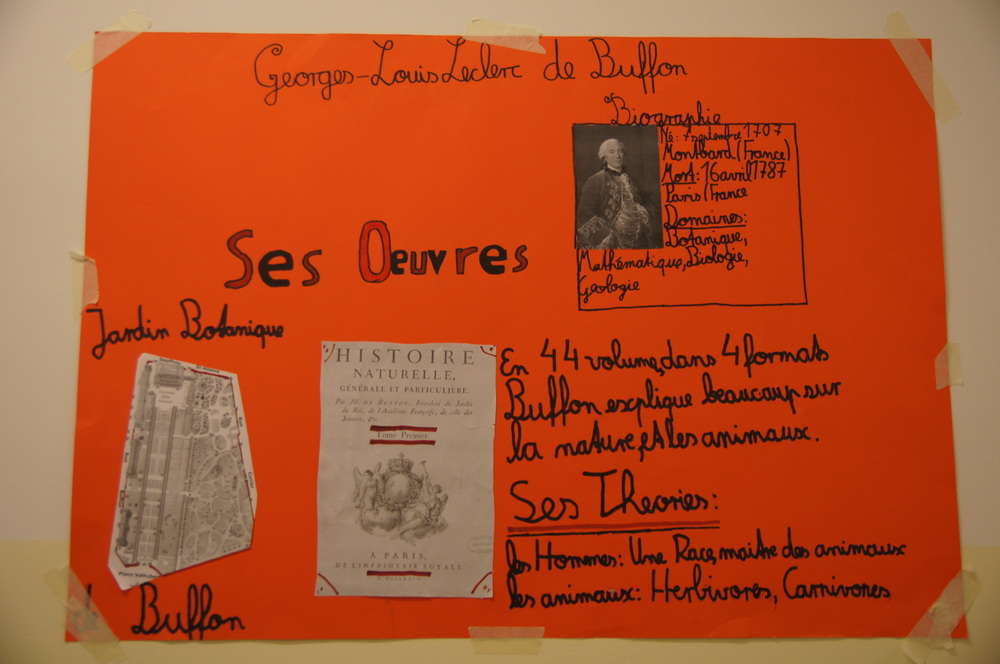 Georges-Louis Leclerc de Buffon
Biographie
Né: 7 septembre 1707
Montbard (France)
Mort: 16 avril 1787
Paris (France
Domaines:
Botanique,
Mathématique, Biologie,
Geologie
Ses Oeuvres
Jardin Botanique
Buffon
HISTOIRE
NATURELLE,
GÉNÉRALE ET PARTICULIÉRE,
Par M. DE BUFFON, Intendant du Jardin
du Roi, de l'Académie Françoise, de celle des
Sciences, &c.
Tome Premier.
A PARIS,
DE L'IMPRIMERIE ROYALE
En 44 volume, dans 4 formats
Buffon explique beaucoup sur
la nature, et les animaux.
Ses Theories:
les Hommes: Une Race, maitre des animaux
les animaux: Herbivores, Carnivores